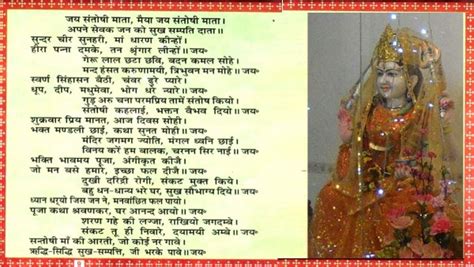 जय संतोषी माता, मैया जय संतोषी माता।
अपने सेवक जन को सुख सम्पति दाता॥
सुन्दर चीर सुनहरी, मां धारण कीन्हों।
हीरा पन्ना दमके, तन श्रृंगार लीन्हों॥जय॰
गेरू लाल छटा छवि, बदन कमल सोहे।
मन्द हंसत करुणामयी, त्रिभुवन मन मोहे॥जय॰
स्वर्ण सिंहासन बैठी, चंवर डुरे प्यारे।
धूप, दीप, मधुमेवा, भोग धरे न्यारे॥जय॰
गुड़ अरु चना परमप्रिय तामें संतोष कियो।
संतोषी कहलाई, भक्तन वैभव दियो॥जय॰
शुक्रवार प्रिय मानत, आज दिवस सोही।
भक्त मण्डली छाई, कथा सुनत मोही॥जय॰
मंदिर जगमग ज्योति, मंगल ध्वनि छाई।
विनय करें हम बालक, चरनन सिर नाई॥जय॰
भक्ति भावमय पूजा, अंगीकृत कीजै।
जो मन बसै हमारे, इच्छा फल दीजै॥जय॰
दुखी दरिद्री रोगी, संकट मुक्त किये।
बहु धन-धान्य भरे घर, सुख सौभाग्य दिये॥जय॰
ध्यान धर्‌यो जिस जन ने, मनवांछित फल पायो।
पूजा कथा श्रवणकर, घर आनन्द आयो॥जय॰
शरण गहे की लज्जा, राखियो जगदम्बे।
संकट तू ही निवारे, दयामयी अम्बे॥जय॰
सन्तोषी माँ की आरती, जो कोई नर गावे।
ऋद्धि-सिद्धि सुख-सम्पत्ति, जी भरके पावे॥जय॰